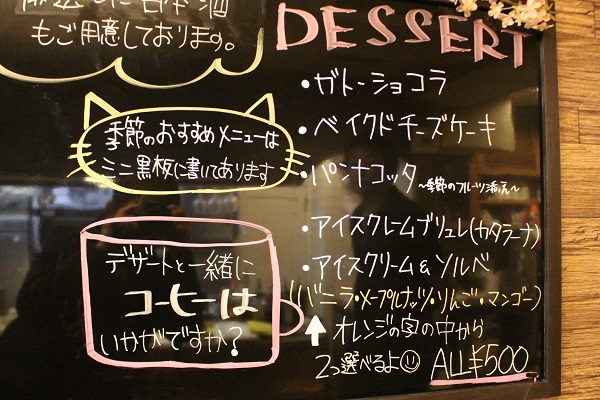 もご用意しております。
季節のおすすめメニューは
ミニ黒板に書いてあります
デザートと一緒に
コーヒーは
いかがですか?
DESSERT
・ガトーショコラ
・ベイクドチーズケーキ
・パンナコッタ ~季節のフルーツ添え~
・アイスクレームブリュレ(カタラーナ)
・アイスクリーム&ソルベ
(バニラ・メープルナッツ・りんご・マンゴー)
↑オレンジの字の中から
2つ選べるよ☺ ALL¥500